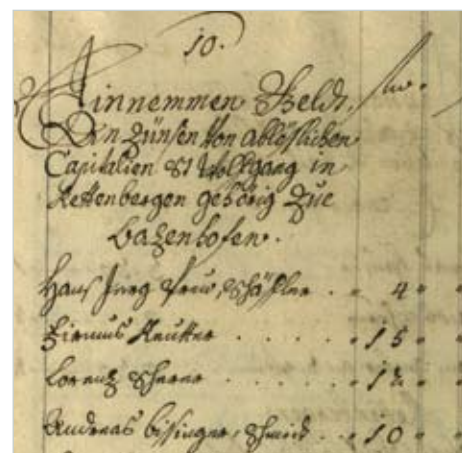 10.
Einnemmen Gelt,
Von Zünsen Von ablößlichen
Capitalien St Wolffgang in
Rettenbergen gehörig Zue
bazenhofen.
Hans Jerg Schäffler . " 4 "
Reutter . . . . . " 15 "
Lorenz Scherer . . . . . . " 12 "
Andreas bissinger, Schmid . . " 10 "